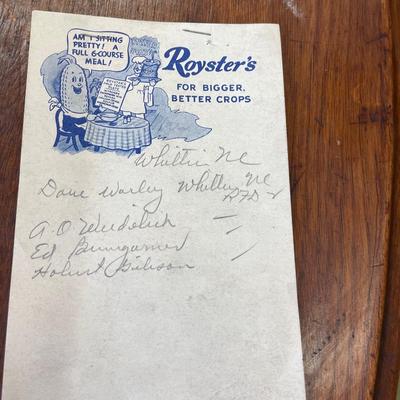 AM I SITTING
PRETTY! A
FULL 6-COURSE
MEAL!
Royster's
FOR BIGGER,
BETTER CROPS
Whittier NC
Dave Warley Whittier NC
RFD 2
A.O.
Ed Bumgarner
Hobert Gibson